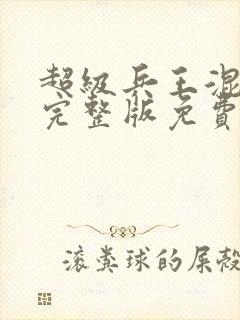 超级兵王混
完整版免费
滚粪球的屎壳